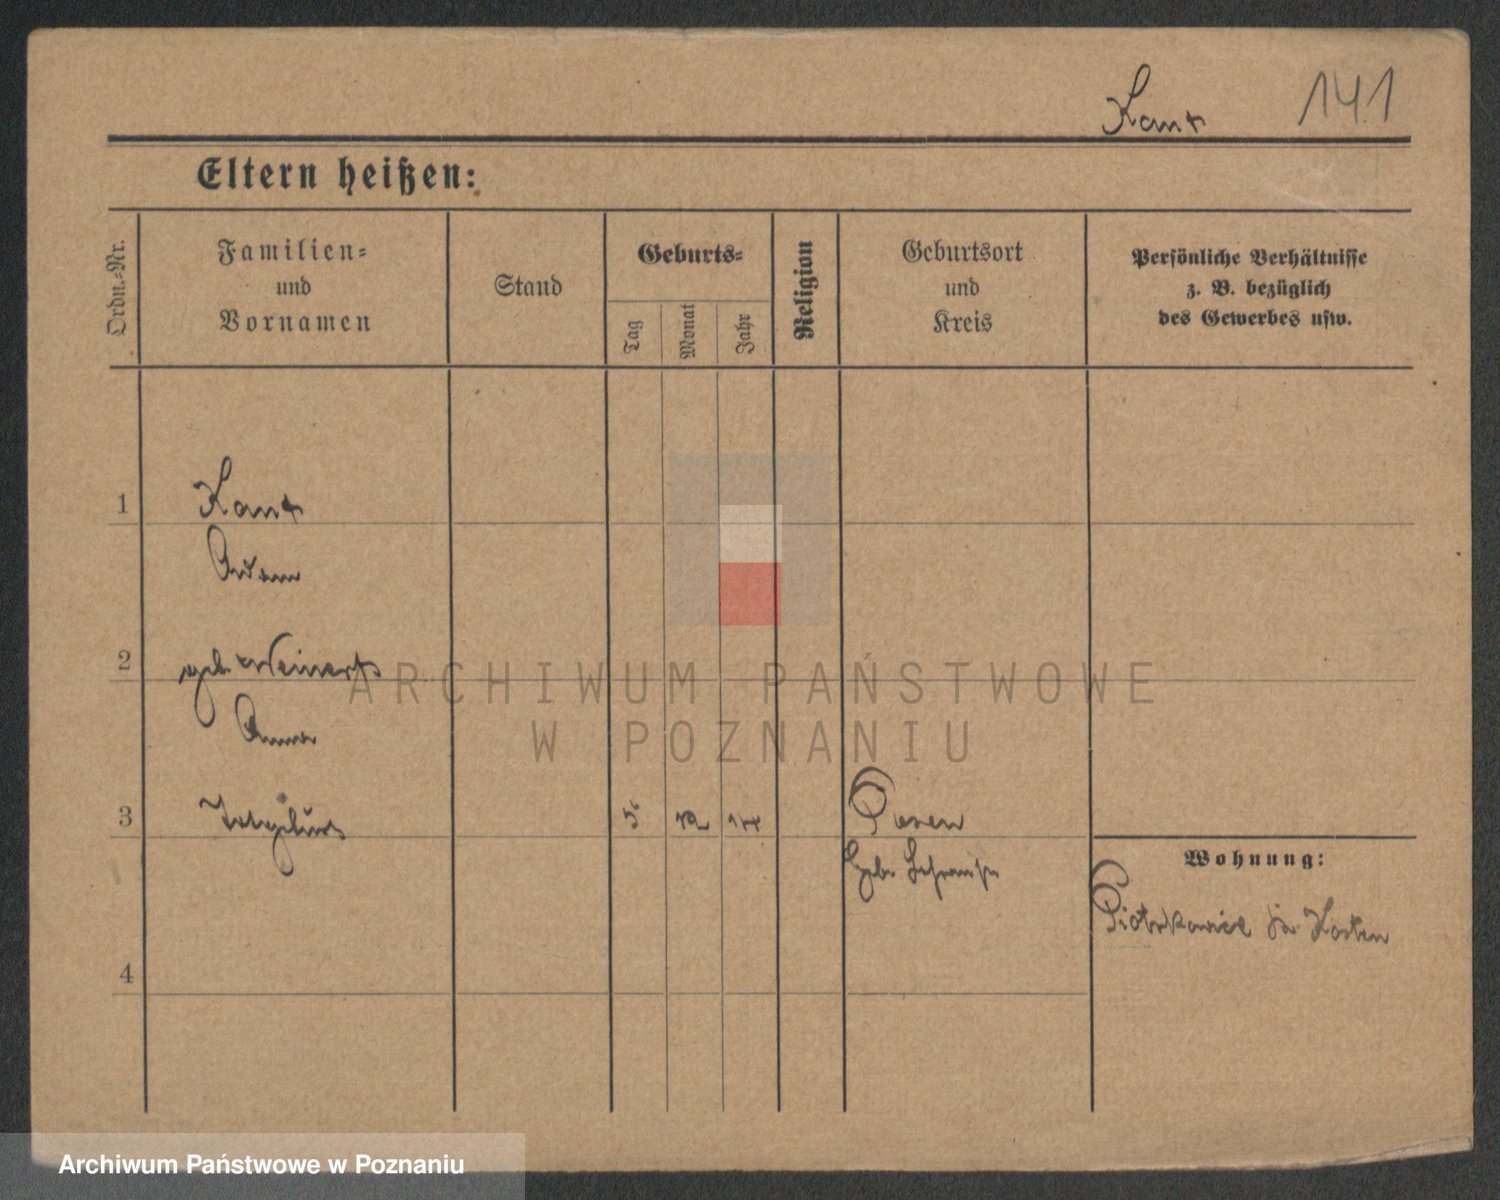 Kant 141
Eltern heißen:
Ordn.-Nr.
Familien-
und
Vornamen
Stand
Geburts-
Tag
Monat
Jahr
Religion
Geburtsort
und
Kreis
Persönliche Verhältnisse
z. B. bezüglich
des Gewerbes usw.
1 Kant
Adam
2 geb. Weinert
Anna
3 Totgeburt 5. 12 14 Posen
4
Wohnung:
Kosten
ARCHIWUM PAŃSTWOWE
W POZNANIU
Archiwum Państwowe w Poznaniu